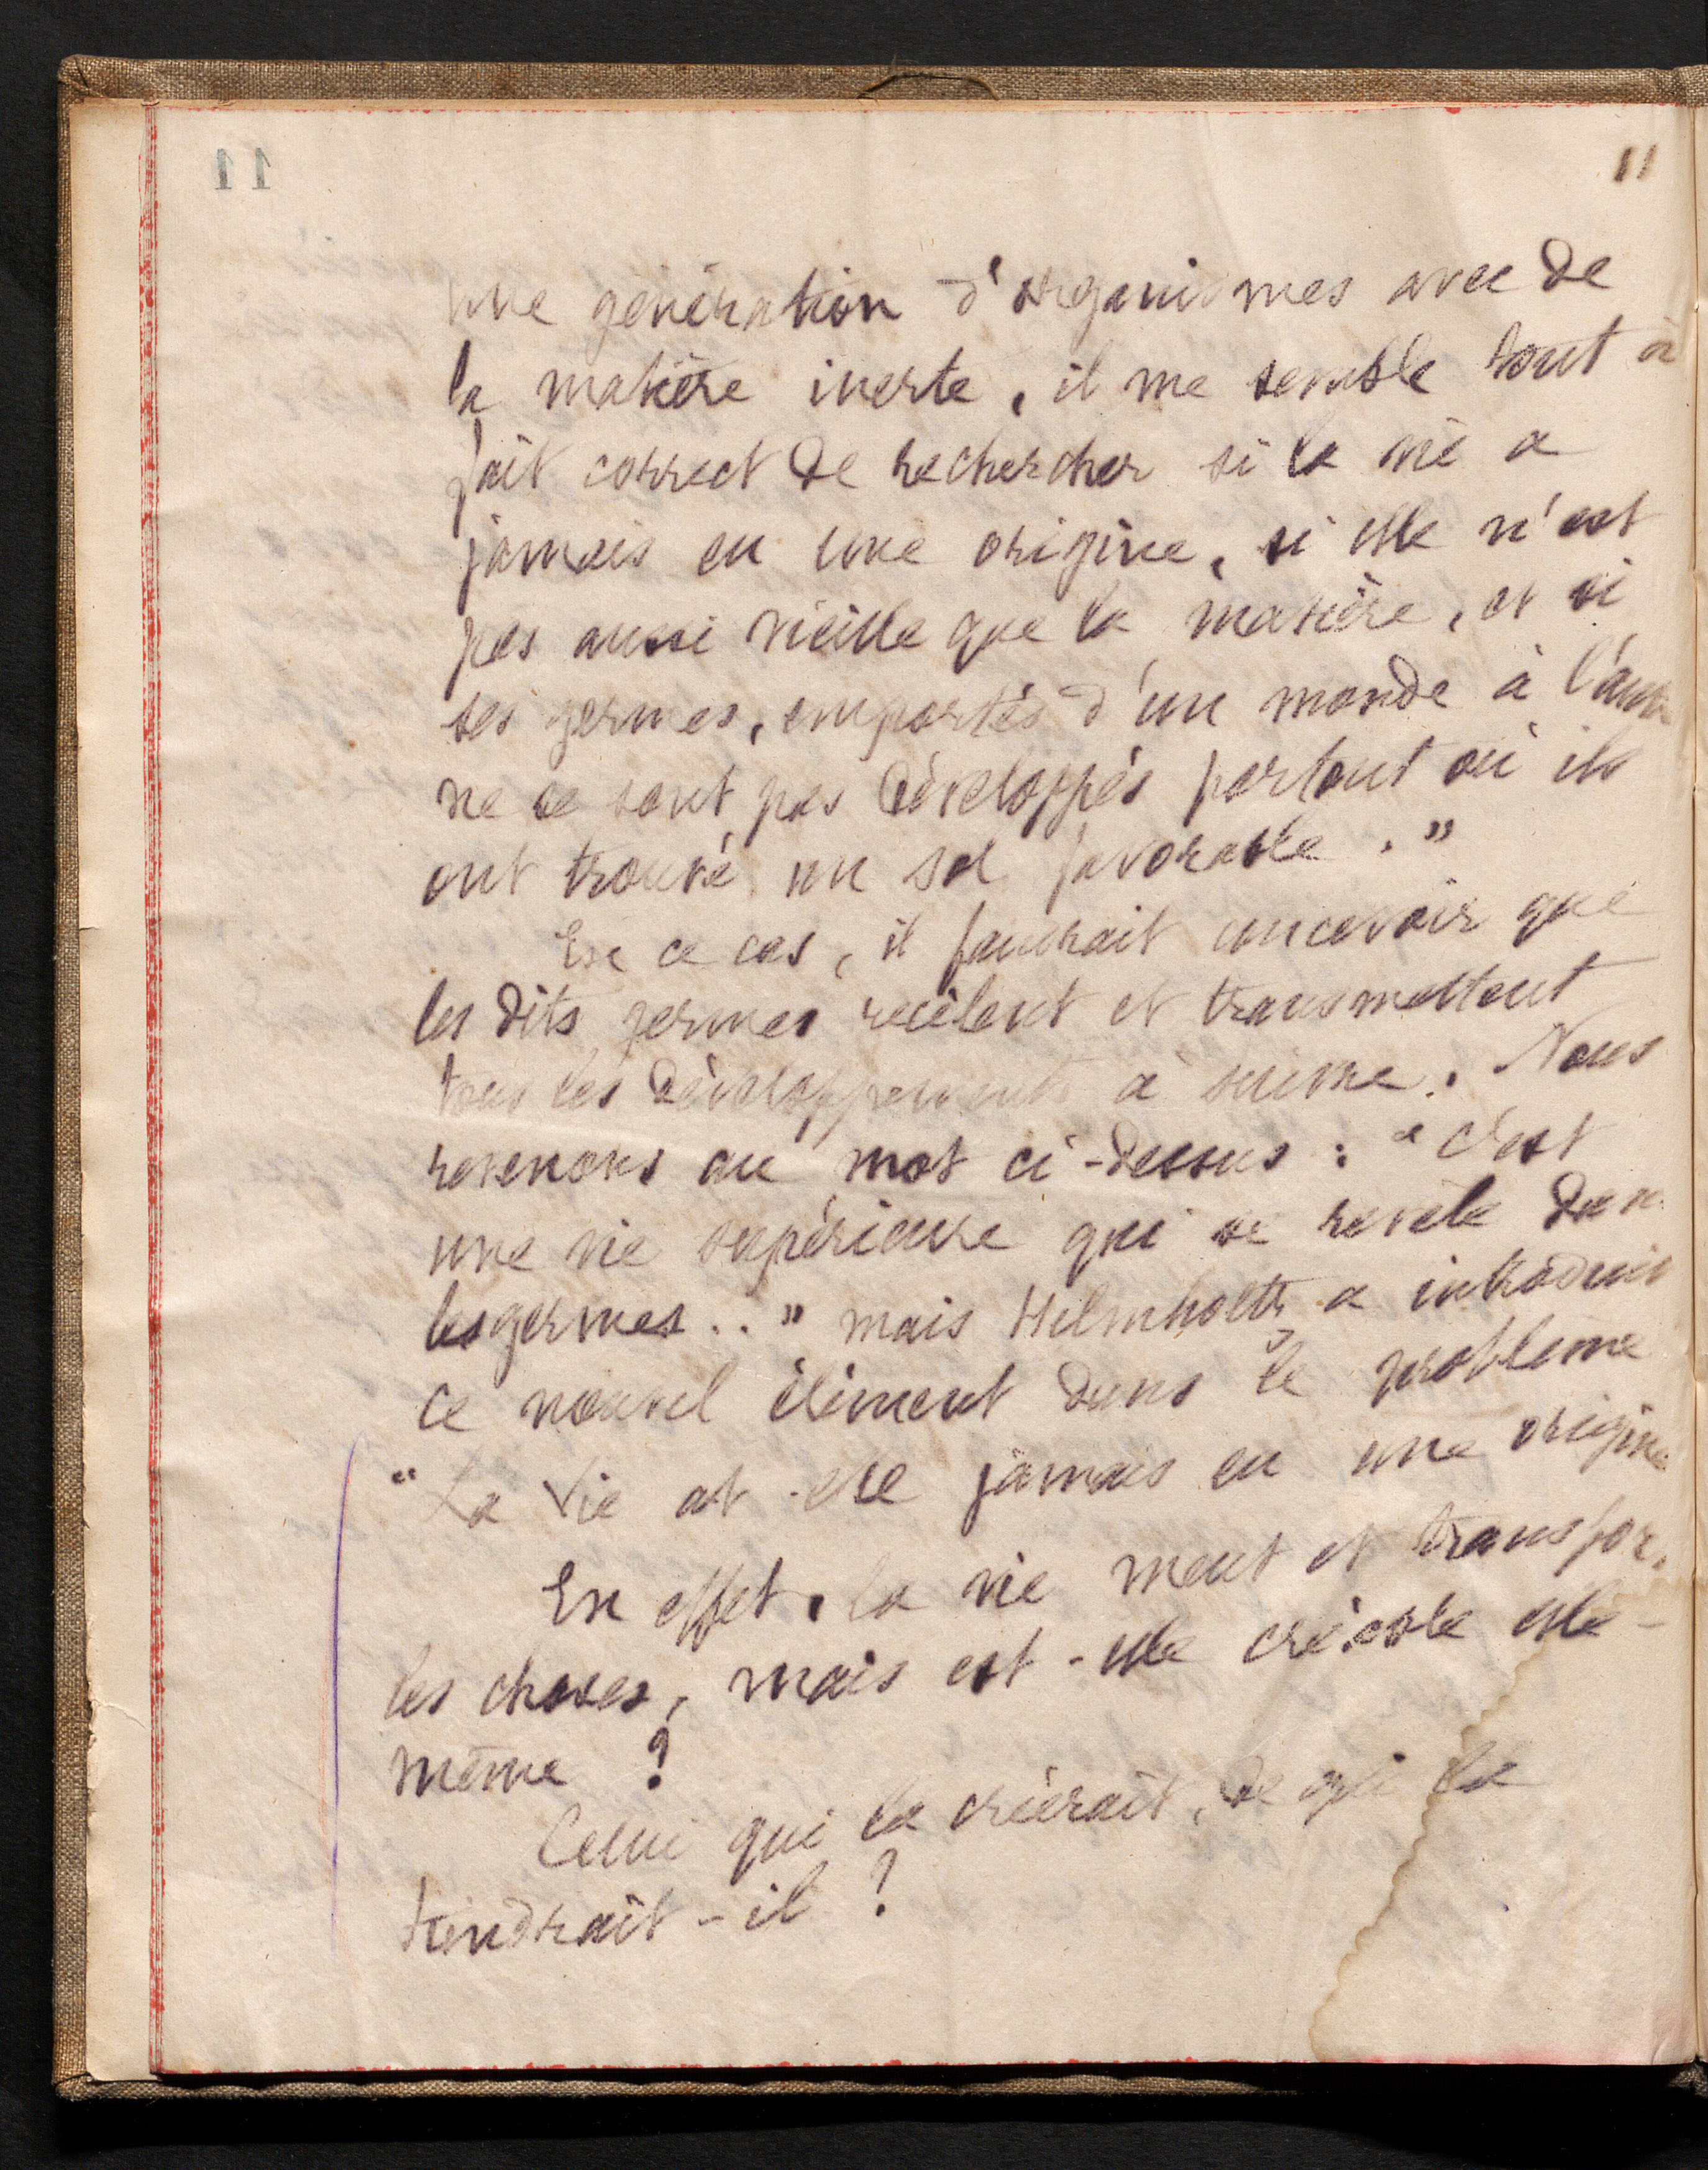 11
une génération d'organismes avec de
la matière inerte, il me semble tout à
fait correct de rechercher si la vie a
jamais eu une origine, si elle n'est
pas aussi vieille que la matière, et si
ses germes, emportés d'un monde à l'autre
ne se sont pas développés partout où ils
ont trouvé un sol favorable."
En ce cas, il faudrait concevoir que
les dits germes recèlent et transmettent
tous les développements à suivre. Nous
revenons au mot ci-dessus : "c'est
une vie supérieure qui se revèle dans
les germes.." mais Helmholtz a introduit
ce nouvel élément dans le problème
"La Vie at-elle jamais eu une origine
En effet, la vie meut et transfor.
les choses, mais est-elle créable elle-
même ?
Celui qui la créerait, de qui la
tiendrait-il ?